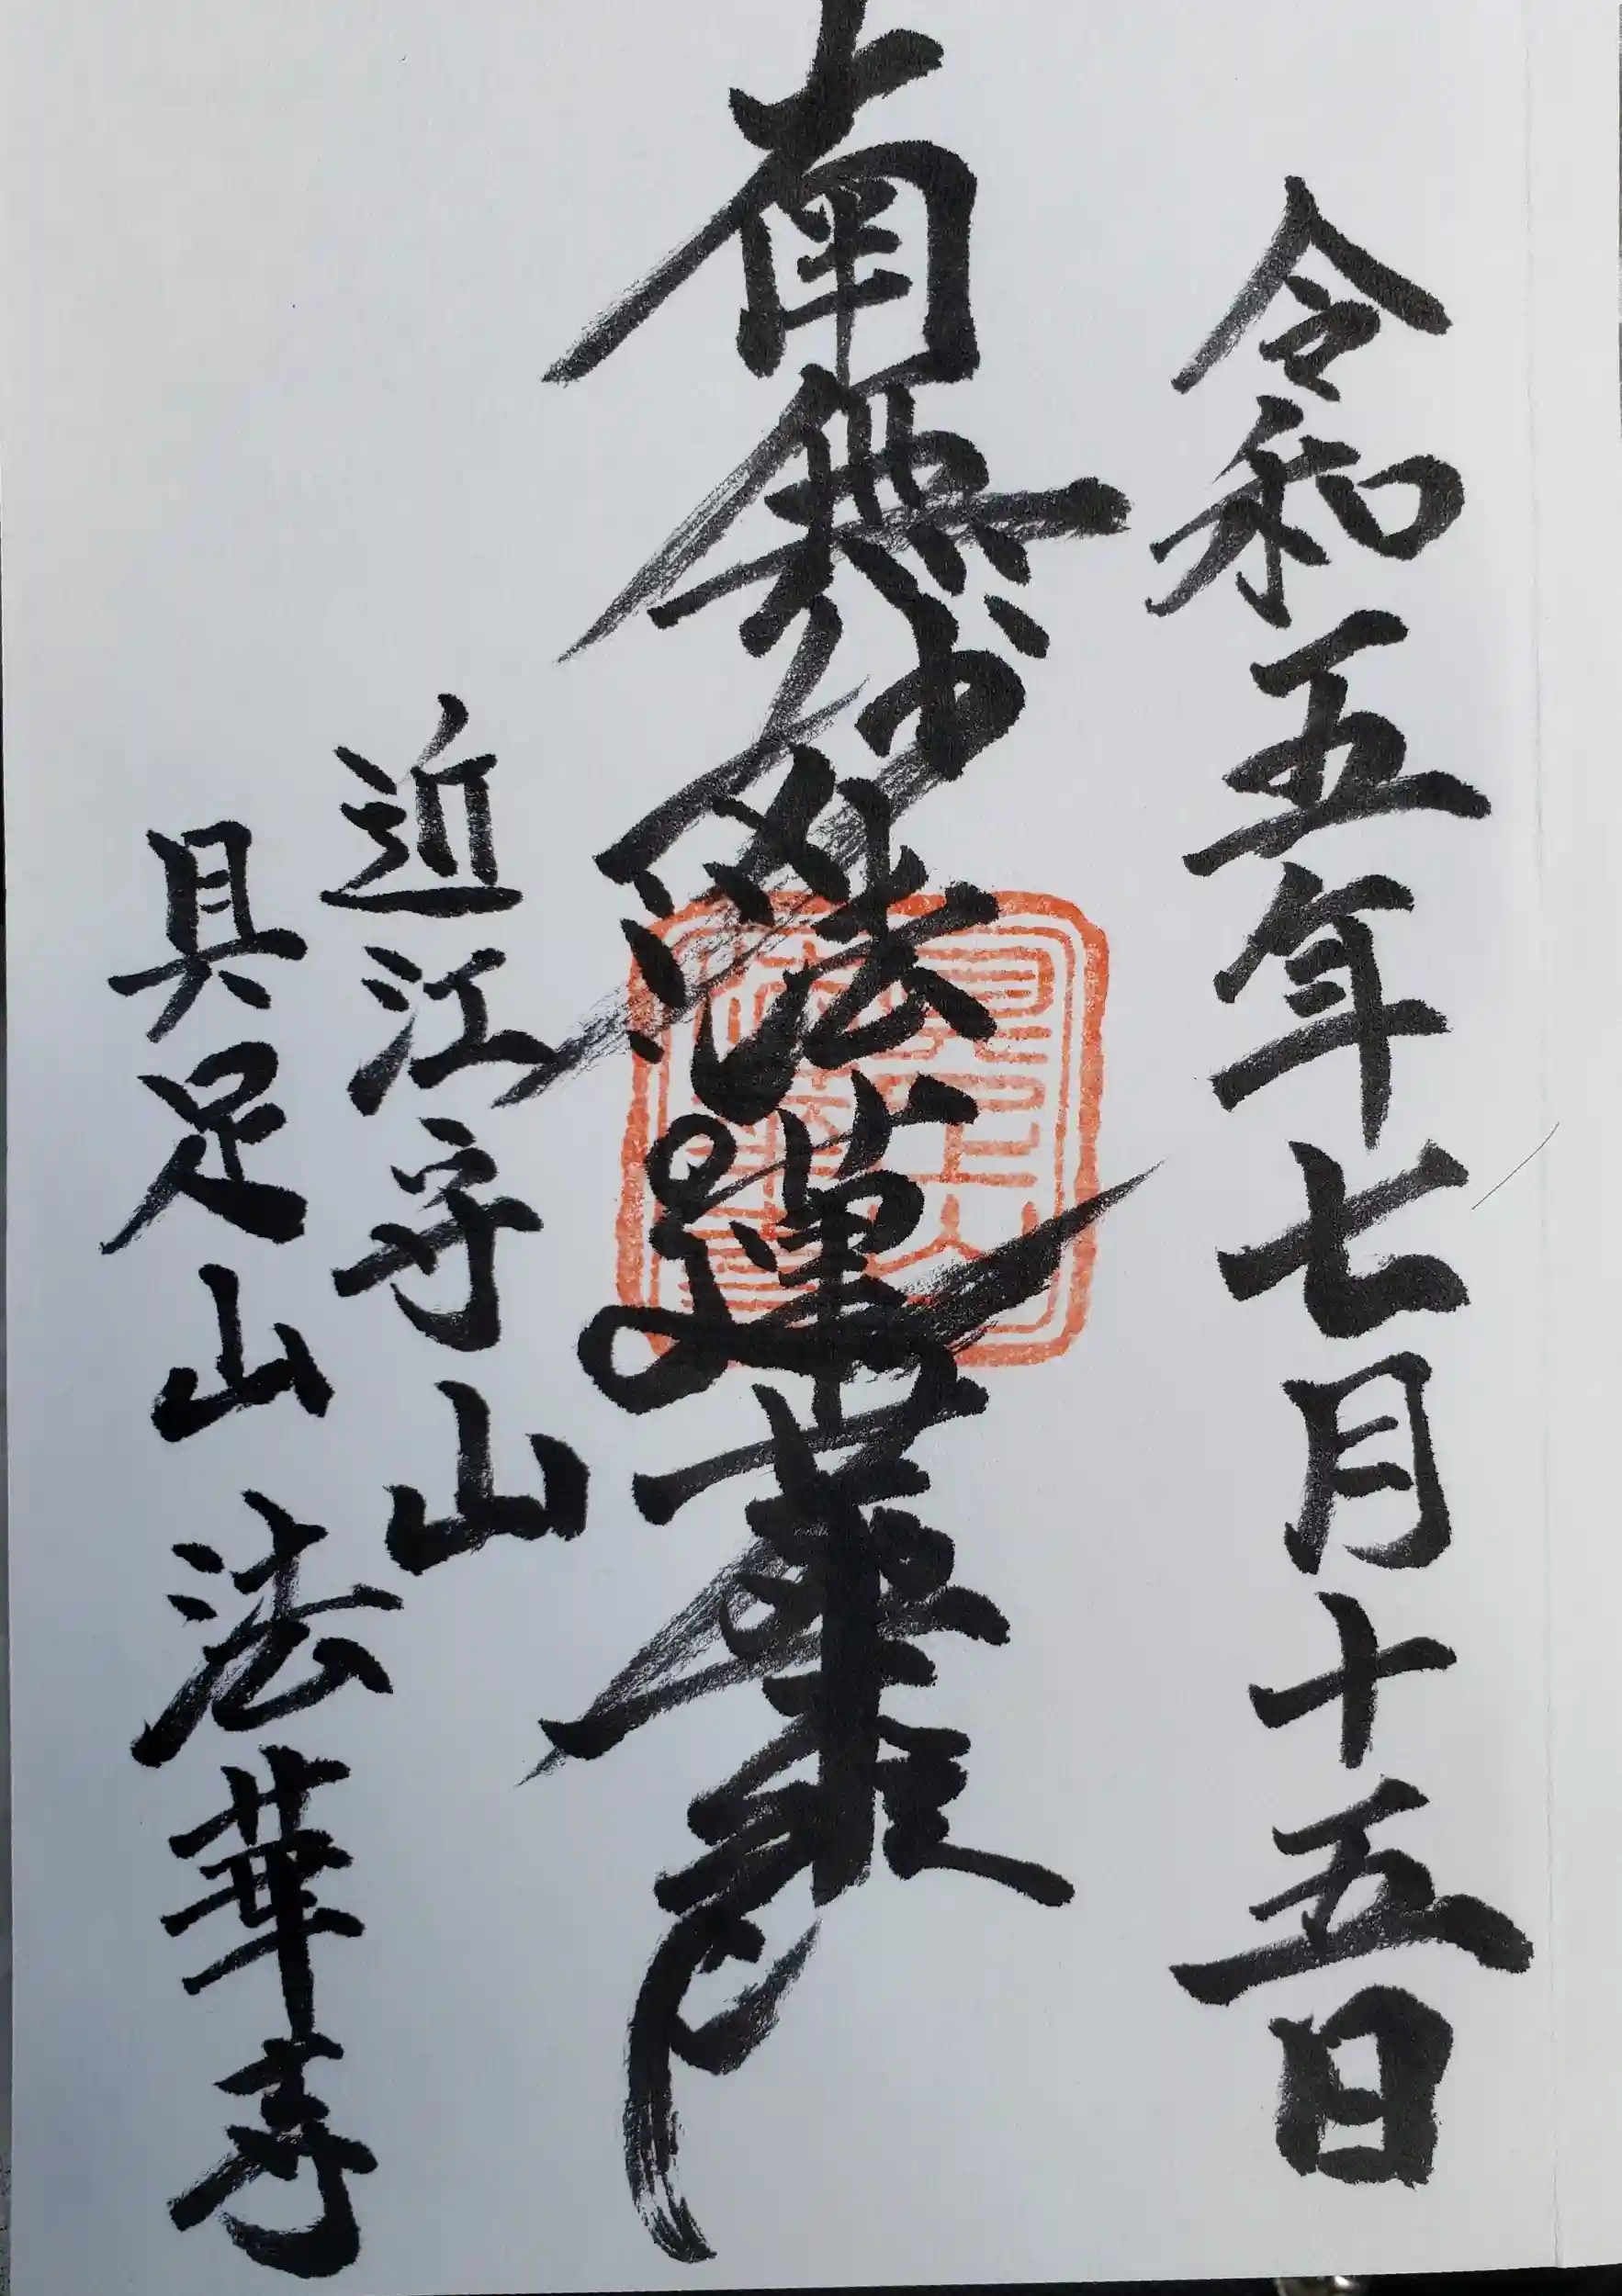 令和五年七月十五日
南無妙法蓮華経
近江守山
具足山法華寺